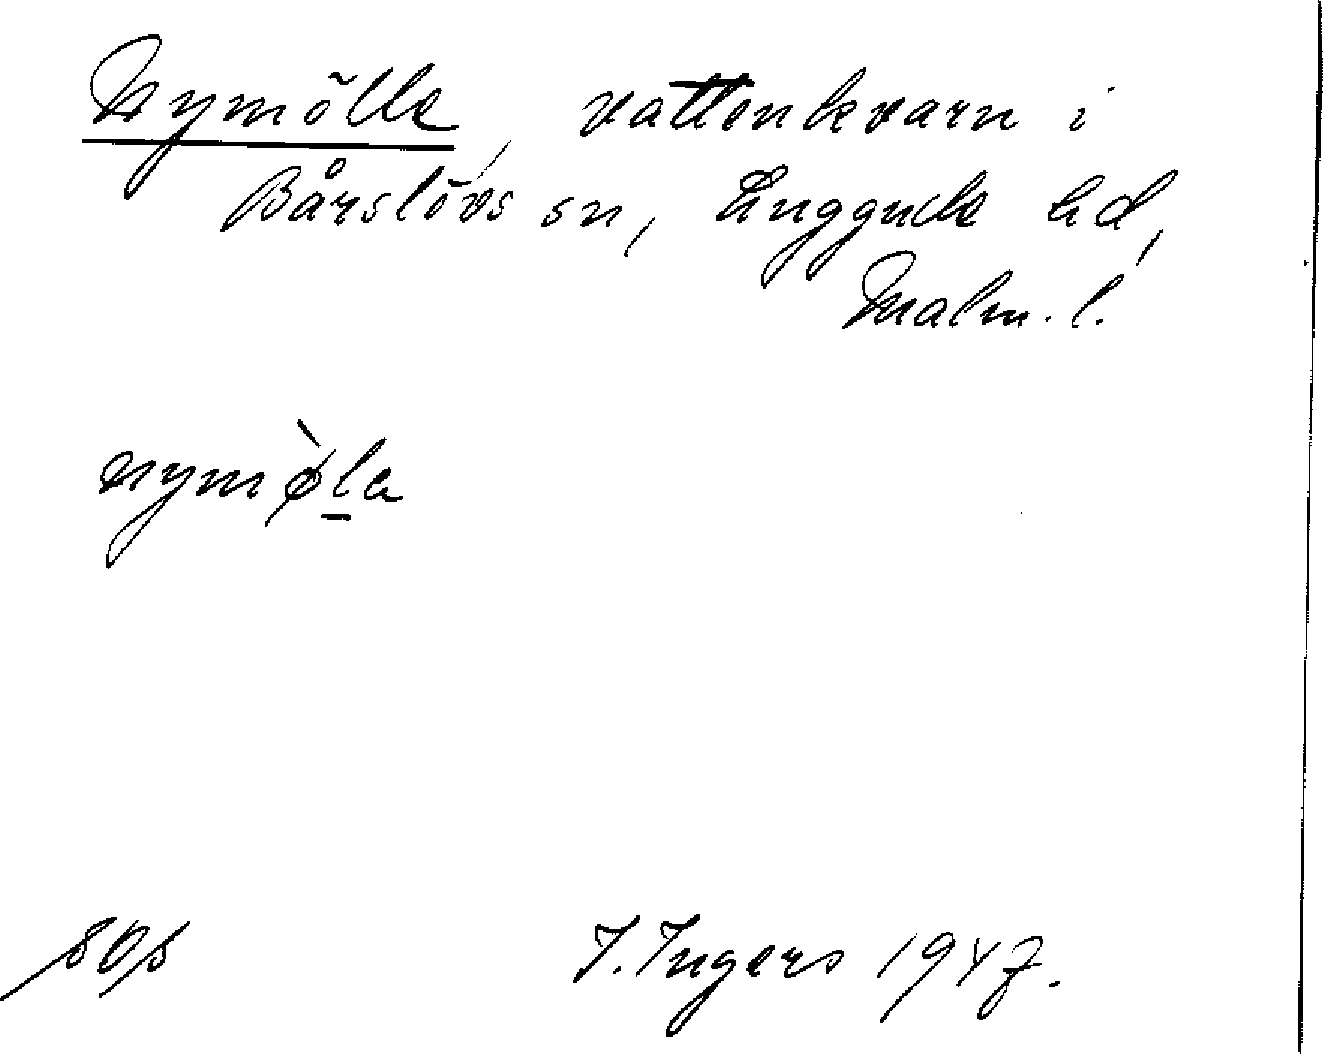 Nymölle, vattenkvarn i
Bårslövs sn, Luggude hd,
Malm. l.
nymø̀la
I. Ingers 1947.